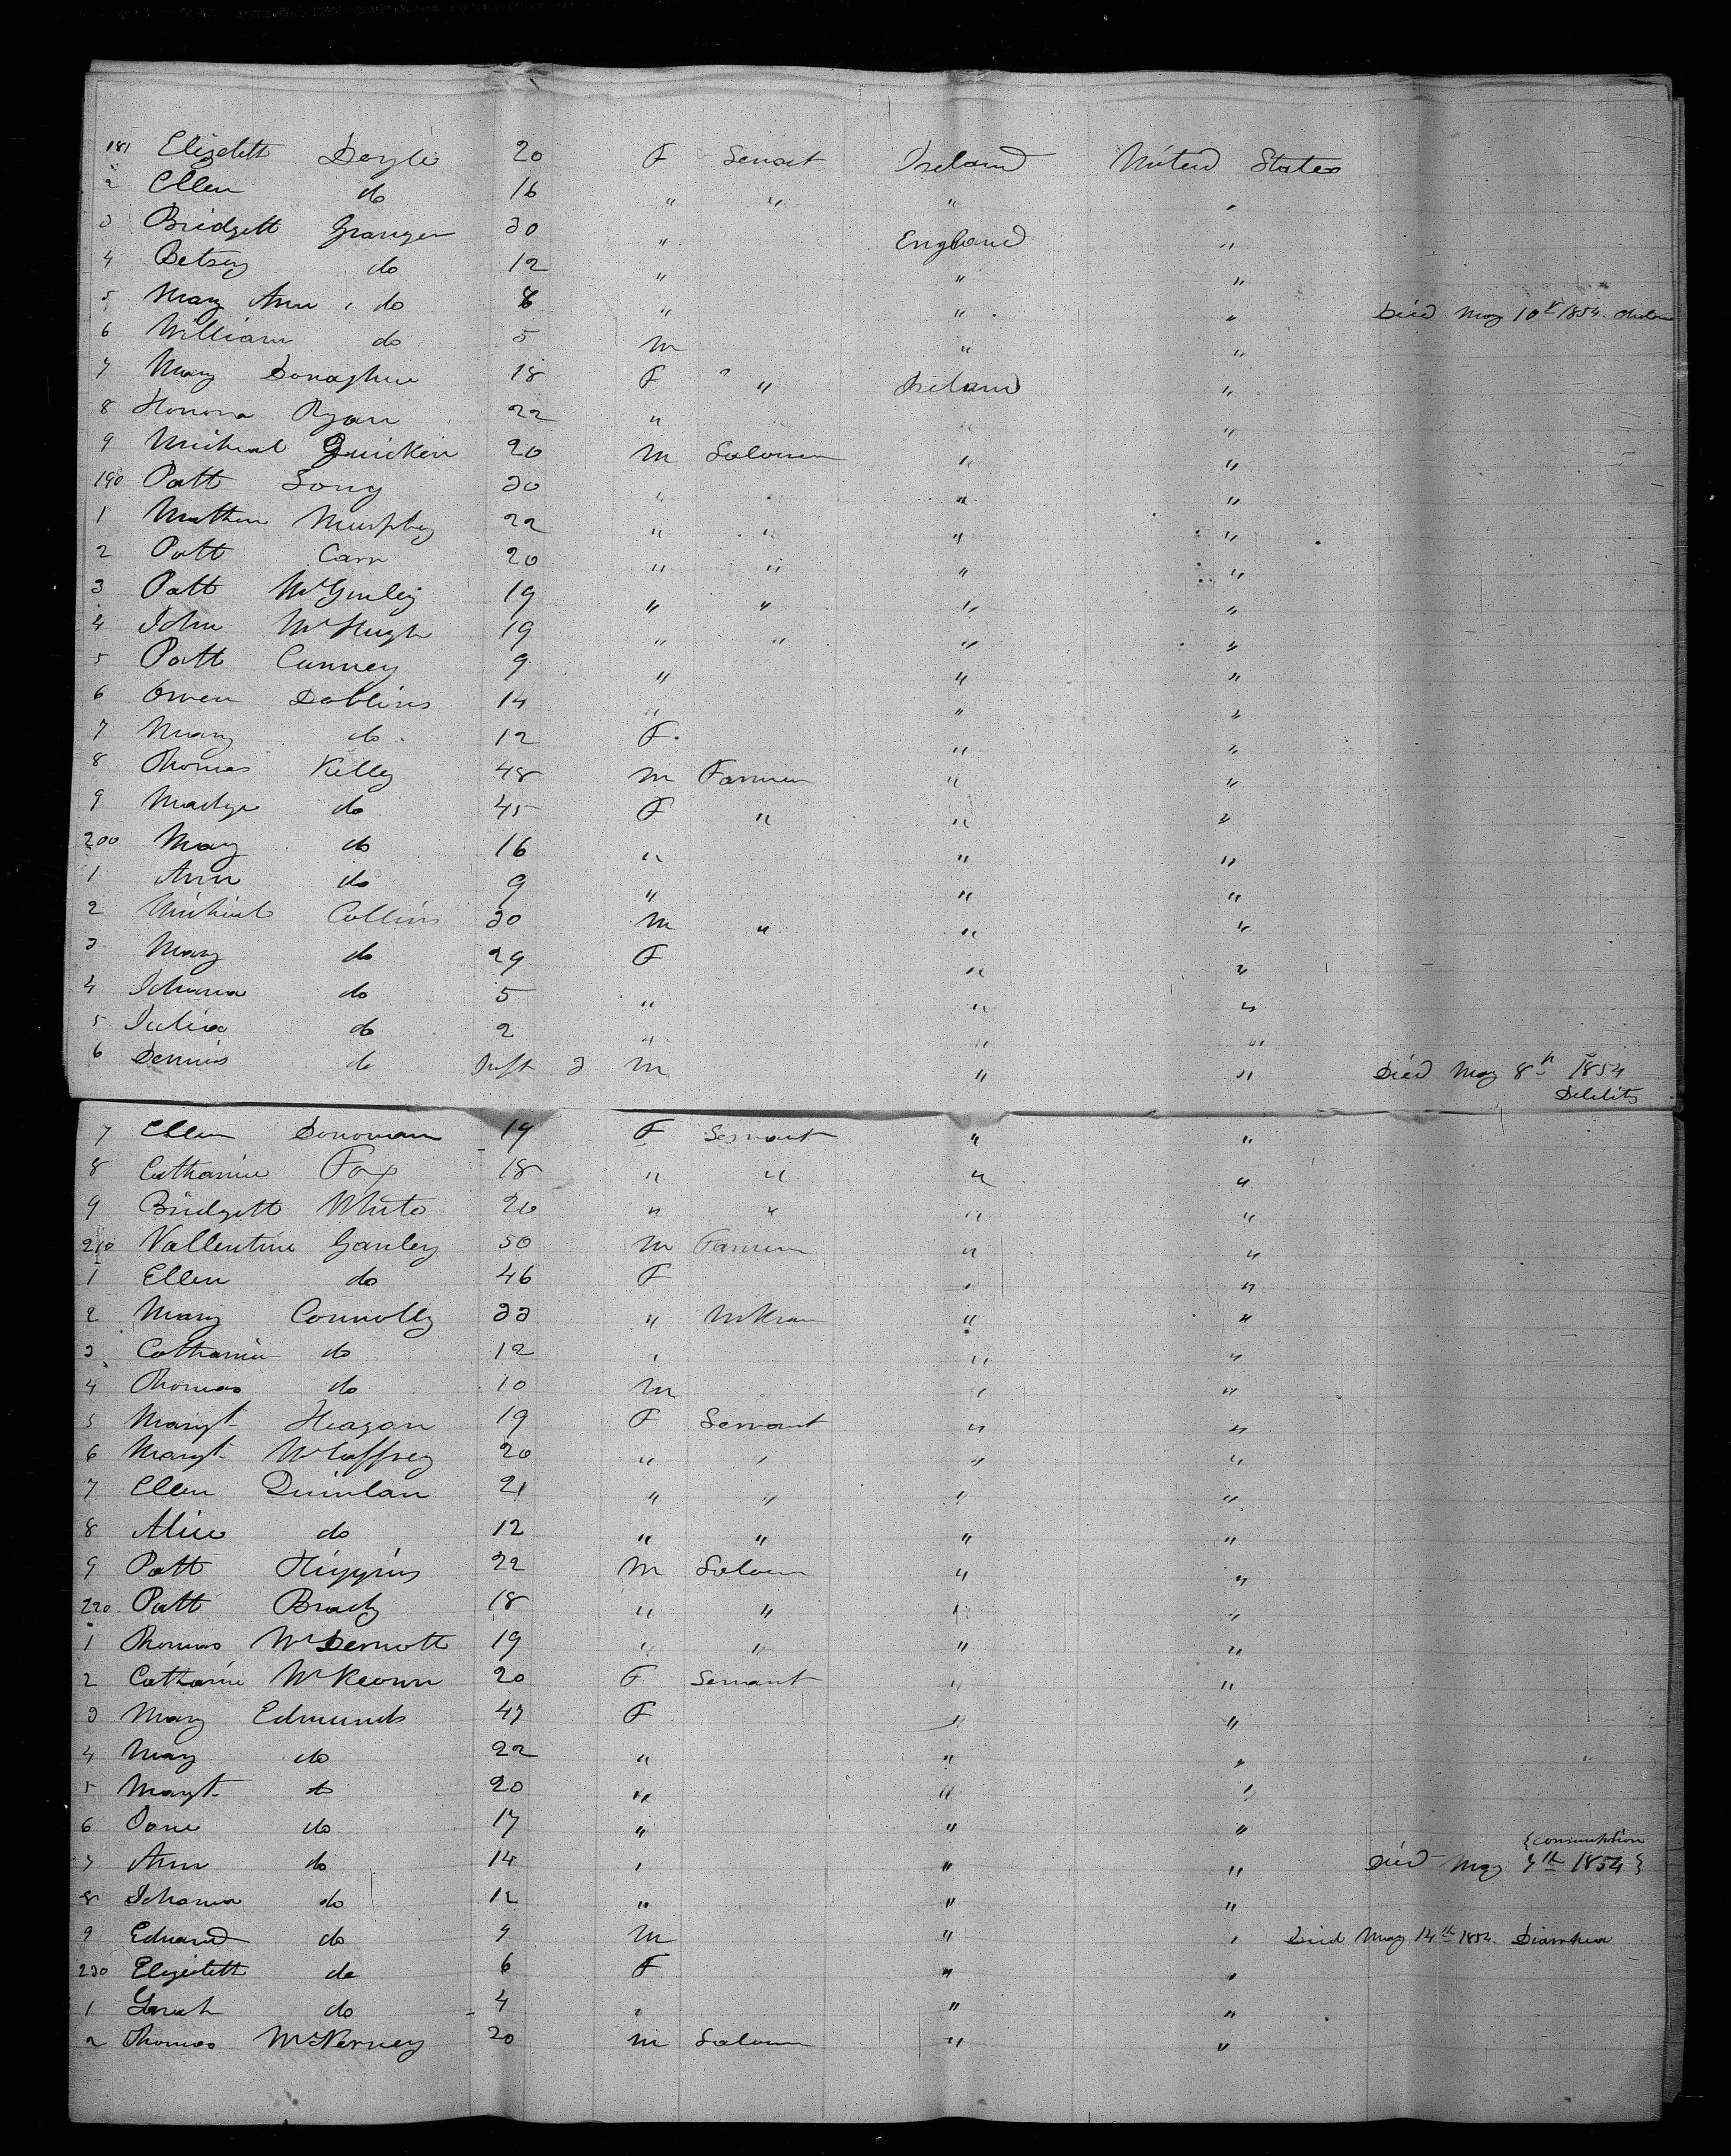 181 Elizabeth Doyle 20 F Servant Ireland United States
2 Ellen do 16 " " " "
3 Bridgett Granger 30 " England "
4 Betsey do 12 " " "
5 Mary Ann do 8 " " " Died May 10th 1854.
6 William do 5 M " "
7 Mary Donaghue 18 F " Ireland "
8 Honora Ryan 22 " " " "
9 Micheal Quicken 20 M Laborer " "
190 Patt Long 30 " " " "
1 Mathew Murphy 22 " " " "
2 Patt Carr 20 " " " "
3 Patt McGinley 19 " " " "
4 John McHugh 19 " " " "
5 Patt Cunney 9 " " "
6 Owen Dobbins 14 " " "
7 Mary do 12 F " "
8 Thomas Kelly 48 M Farmer " "
9 Madge do 45 F " " "
200 Mary do 16 " " "
1 Ann do 9 " " "
2 Micheal Collins 30 M " " "
3 Mary do 29 F " "
4 Johana do 5 " " "
5 Julia do 2 " " "
6 Dennis do Inft 3 M " " Died May 8th 1854
Debility
7 Ellen Donovan 19 F Servant " "
8 Catharine Fox 18 " " " "
9 Bridgett White 20 " " " "
210 Vallentine Ganley 50 M Farmer " "
1 Ellen do 46 F " "
2 Mary Connolly 33 " " "
3 Catharine do 12 " " "
4 Thomas do 10 M " "
5 Margt Heagan 19 F Servant " "
6 Margt McCaffrey 20 " " " "
7 Ellen Quinlan 21 " " " "
8 Alice do 12 " " " "
9 Patt Higgins 22 M Laborer " "
220 Patt Brady 18 " " " "
1 Thomas McDermott 19 " " " "
2 Catharine McKeown 20 F Servant " "
3 Mary Edmunds 47 F " "
4 Mary do 22 " " "
5 Margt do 20 " " "
6 Jane do 17 " " "
{consumption
7 Ann do 14 " " " Died May 7th 1854}
8 Johanna do 12 " " "
9 Edward do 9 M " " Died May 14th 1854. Diarrhea
230 Elizabeth do 6 F " "
1 Sarah do 4 " " "
2 Thomas McNerney 20 M Laborer " "